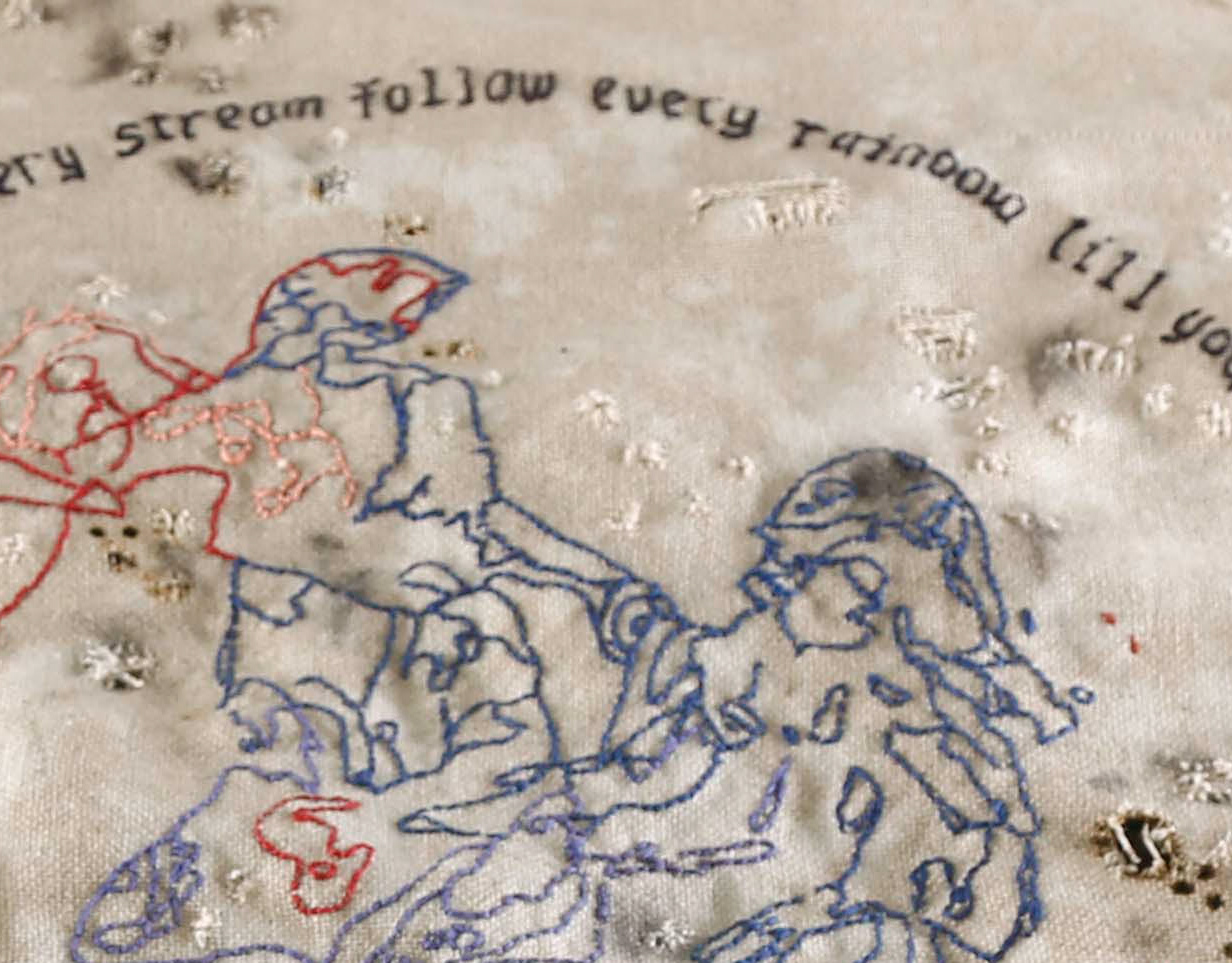 ery stream follow every rainbow till you